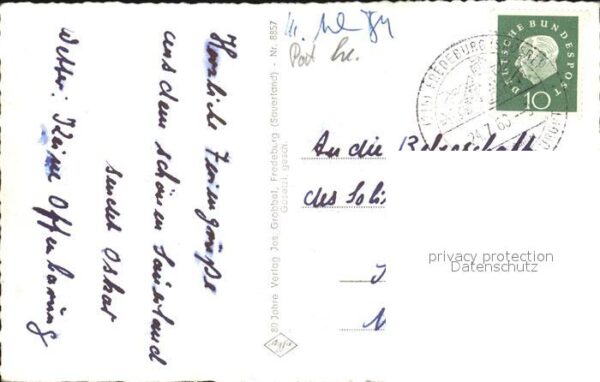 Herzliche Feriengrüße
aus dem schönen Sauerland
sendet Oskar
Wetter: Keine Offenbarung
80 Jahre Verlag Jos. Grobbel, Fredeburg (Sauerland) - Nr. 8857
Gesetzl. gesch.
Agfa
Post
DEUTSCHE BUNDESPOST
10
FREDEBURG
24.7.60
An die Belegschaft
des
privacy protection
Datenschutz